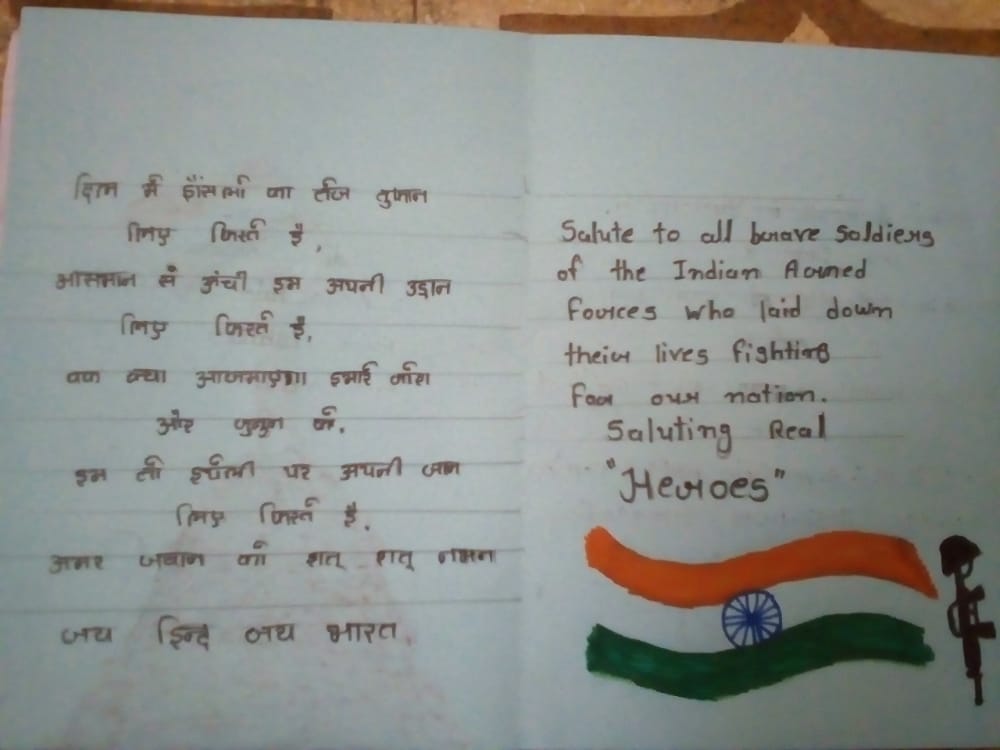 दिल में हौंसलों का तेज तुफान
लिए फिरते है,
आसमान से ऊंची हम अपनी उड़ान
लिए फिरते है,
वक्त क्या आजमाएगा हमारे जोश
और जुनुन को,
हम तो हथेली पर अपनी जान
लिए फिरते है,
अमर जवान को शत् शत् नमन
जय हिन्द जय भारत,
Salute to all brave Soldiers
of the Indian Armed
Forces who laid down
their lives fighting
for our nation.
Saluting Real
"Heroes"